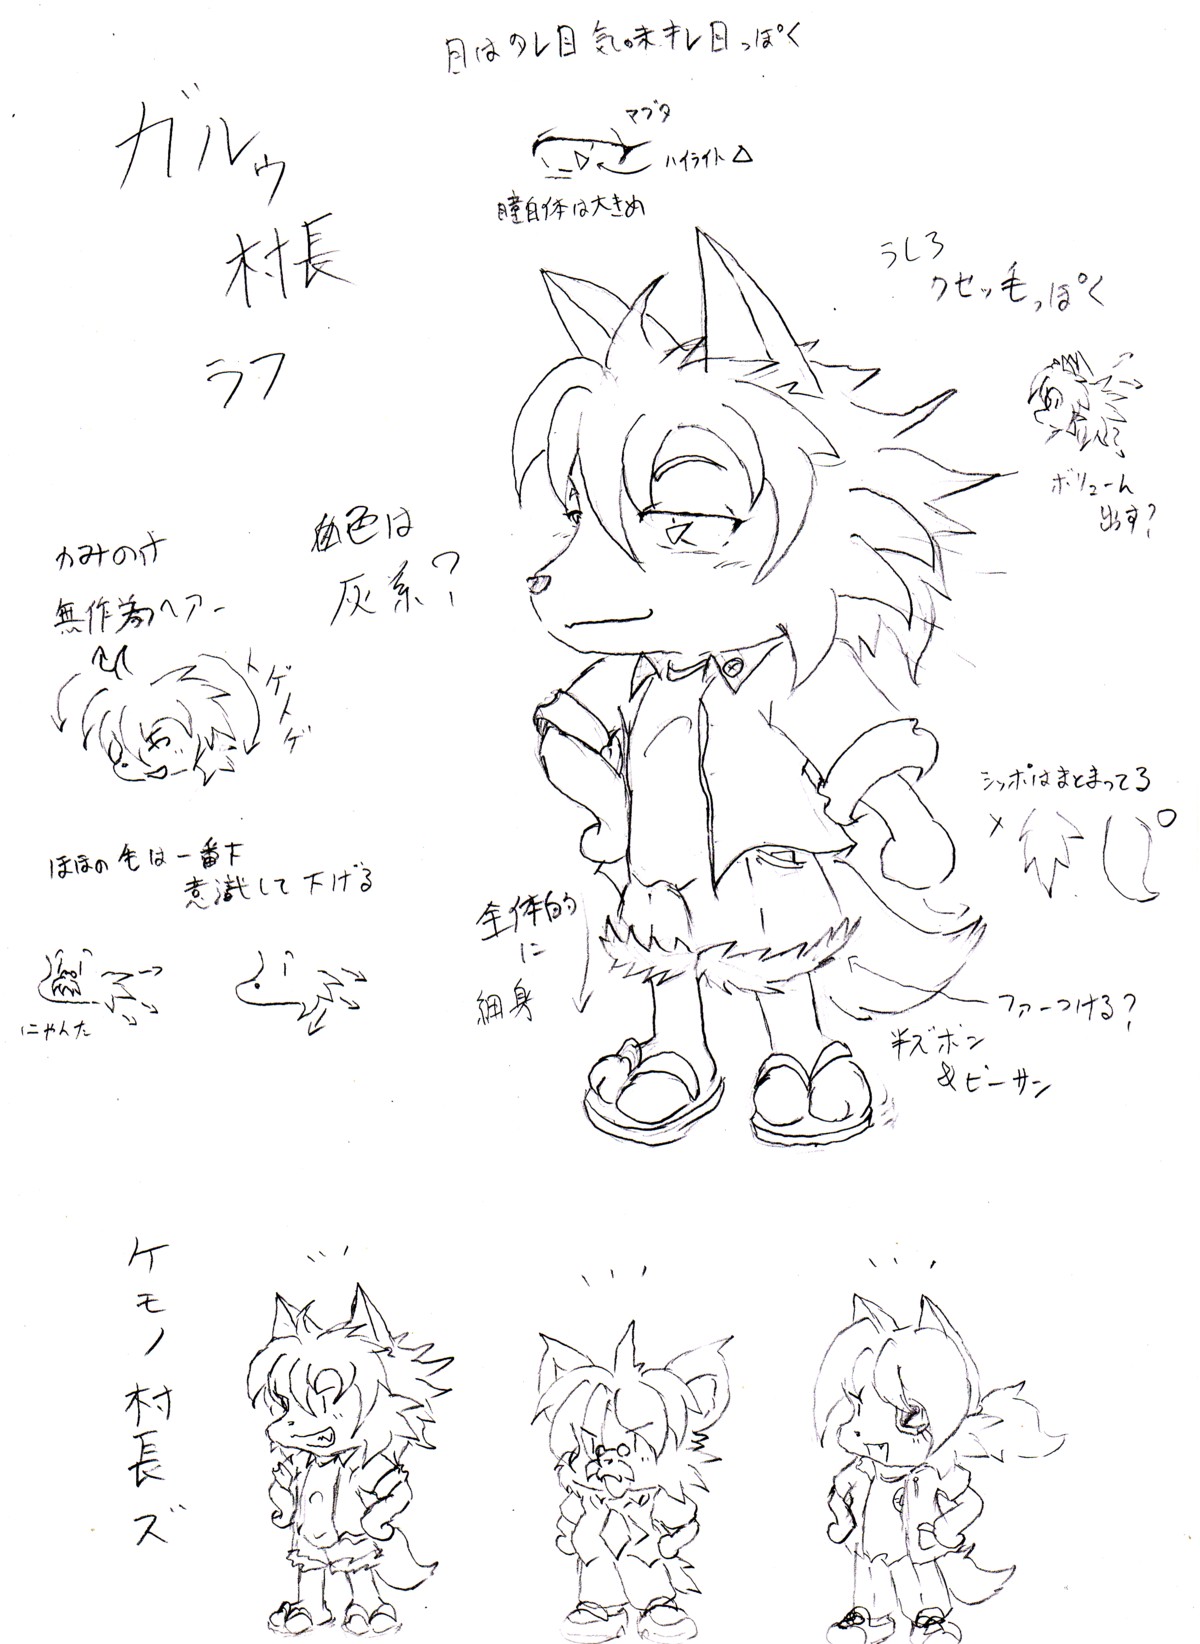 目はタレ目気味キレ目っぽく
ガルゥ
村長
ラフ
マブタ
ハイライト△
瞳自体は大きめ
うしろ
クセッ毛っぽく
ボリューム
出す?
かみのけ
無作為ヘアー
トゲトゲ
色は
灰系?
ほほの毛は一番下
意識して下げる
にゃんた
シッポはまとまってる
×
○
全体的
に
細身
ファーつける?
半ズボン
&ビーサン
ケモノ村長ズ